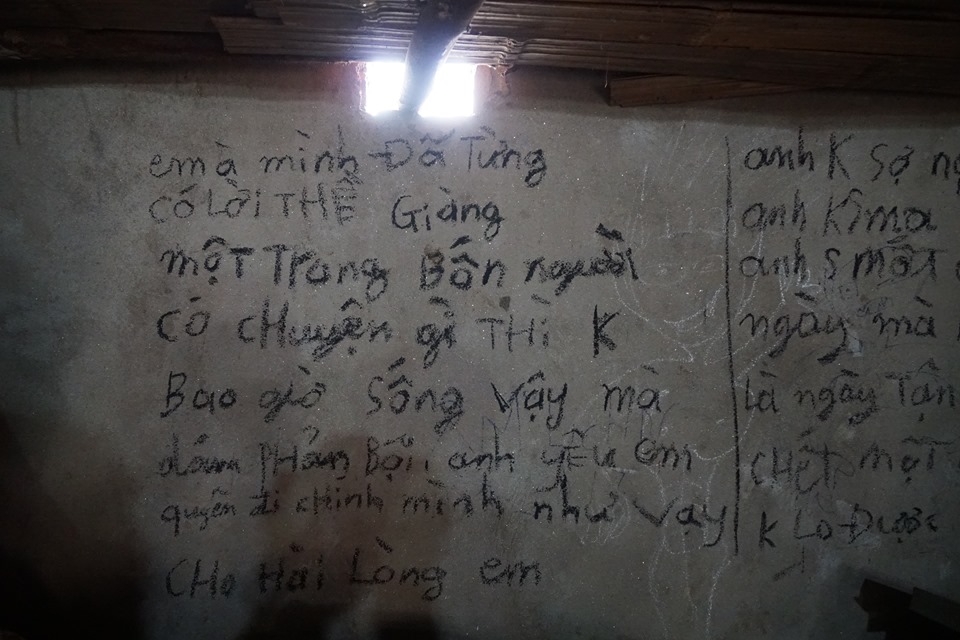 em à mình Đã Từng
có Lời THỀ Giàng
một Trong Bốn người
có cHuyện gì THì K
Bao giờ Sống vậy mà
dám pHản Bội anh yêu em
quyên đi cHính mình như vậy
CHo Hải Lòng em
anh K sợ
anh K ma
anh s mất
ngày mà
là ngày Tận
cHết một
K Lo Được